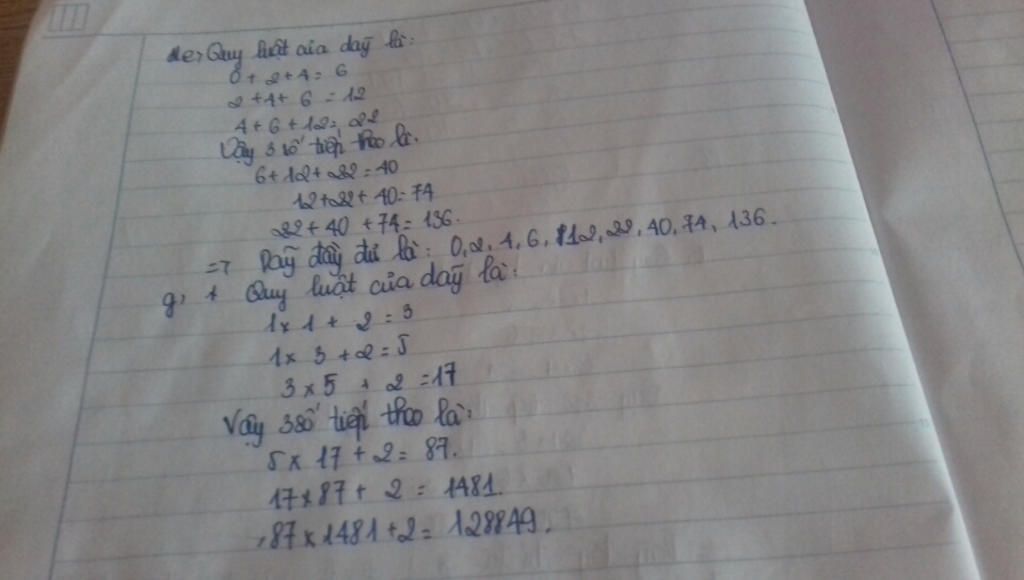 e, Quy luật của dãy là:
0 + 2 + 4 = 6
2 + 4 + 6 = 12
4 + 6 + 12 = 22
Vậy 3 số tiếp theo là.
6 + 12 + 22 = 40
12 + 22 + 40 = 74
22 + 40 + 74 = 136.
=> Dãy đầy đủ là: 0, 2, 4, 6, 12, 22, 40, 74, 136.
g, Quy luật của dãy là:
1 x 1 + 2 = 3
1 x 3 + 2 = 5
3 x 5 + 2 = 17
Vậy 3 số tiếp theo là:
5 x 17 + 2 = 87.
17 x 87 + 2 = 1481.
87 x 1481 + 2 = 128849.